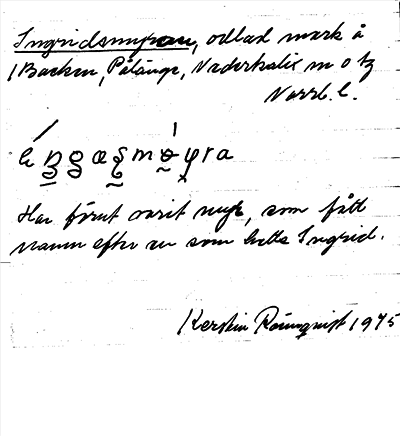 Ingridsmyran, odlad mark å
1 Backen, Pålänge, Nederkalix m o tg
Norrb. l.
Har förut varit myr, som fått
namn efter en som hette Ingrid.
Kerstin Rönnqvist 1975